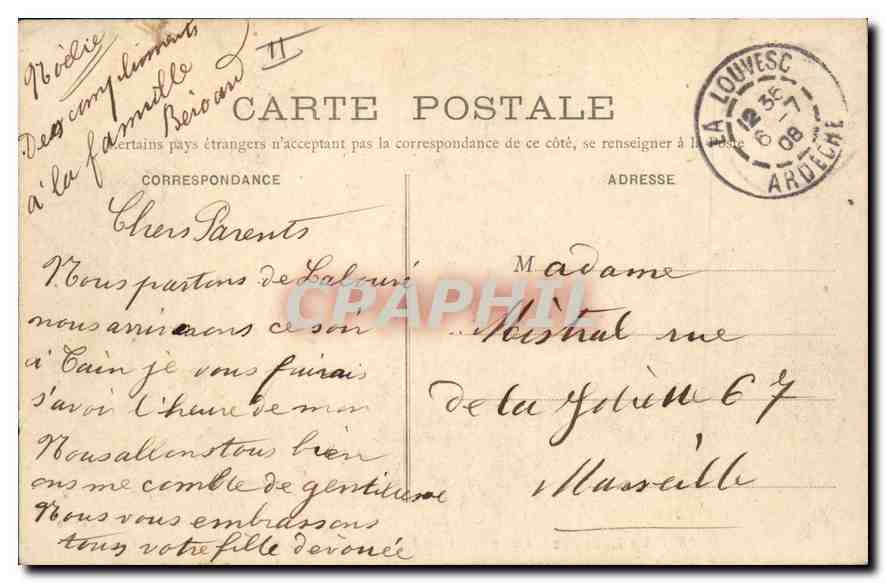 Noëlie
Des compliments
à la famille
II
CARTE POSTALE
Certains pays étrangers n'acceptant pas la correspondance de ce côté, se renseigner à la Poste
CORRESPONDANCE
ADRESSE
LA LOUVESC
12 35
6 -7
08
ARDÈCHE
Chers Parents
Nous partons de Lalouvé
nous arriverons ce soir
à Tain je vous fairais
s'avoir l'heure de mon
Nous allons tous bien
ons me comble de gentilesse
Nous vous embrassons
tous votre fille dévouée
Madame
Mistral rue
de la Joliette 67
Marseille
CPAPHIL